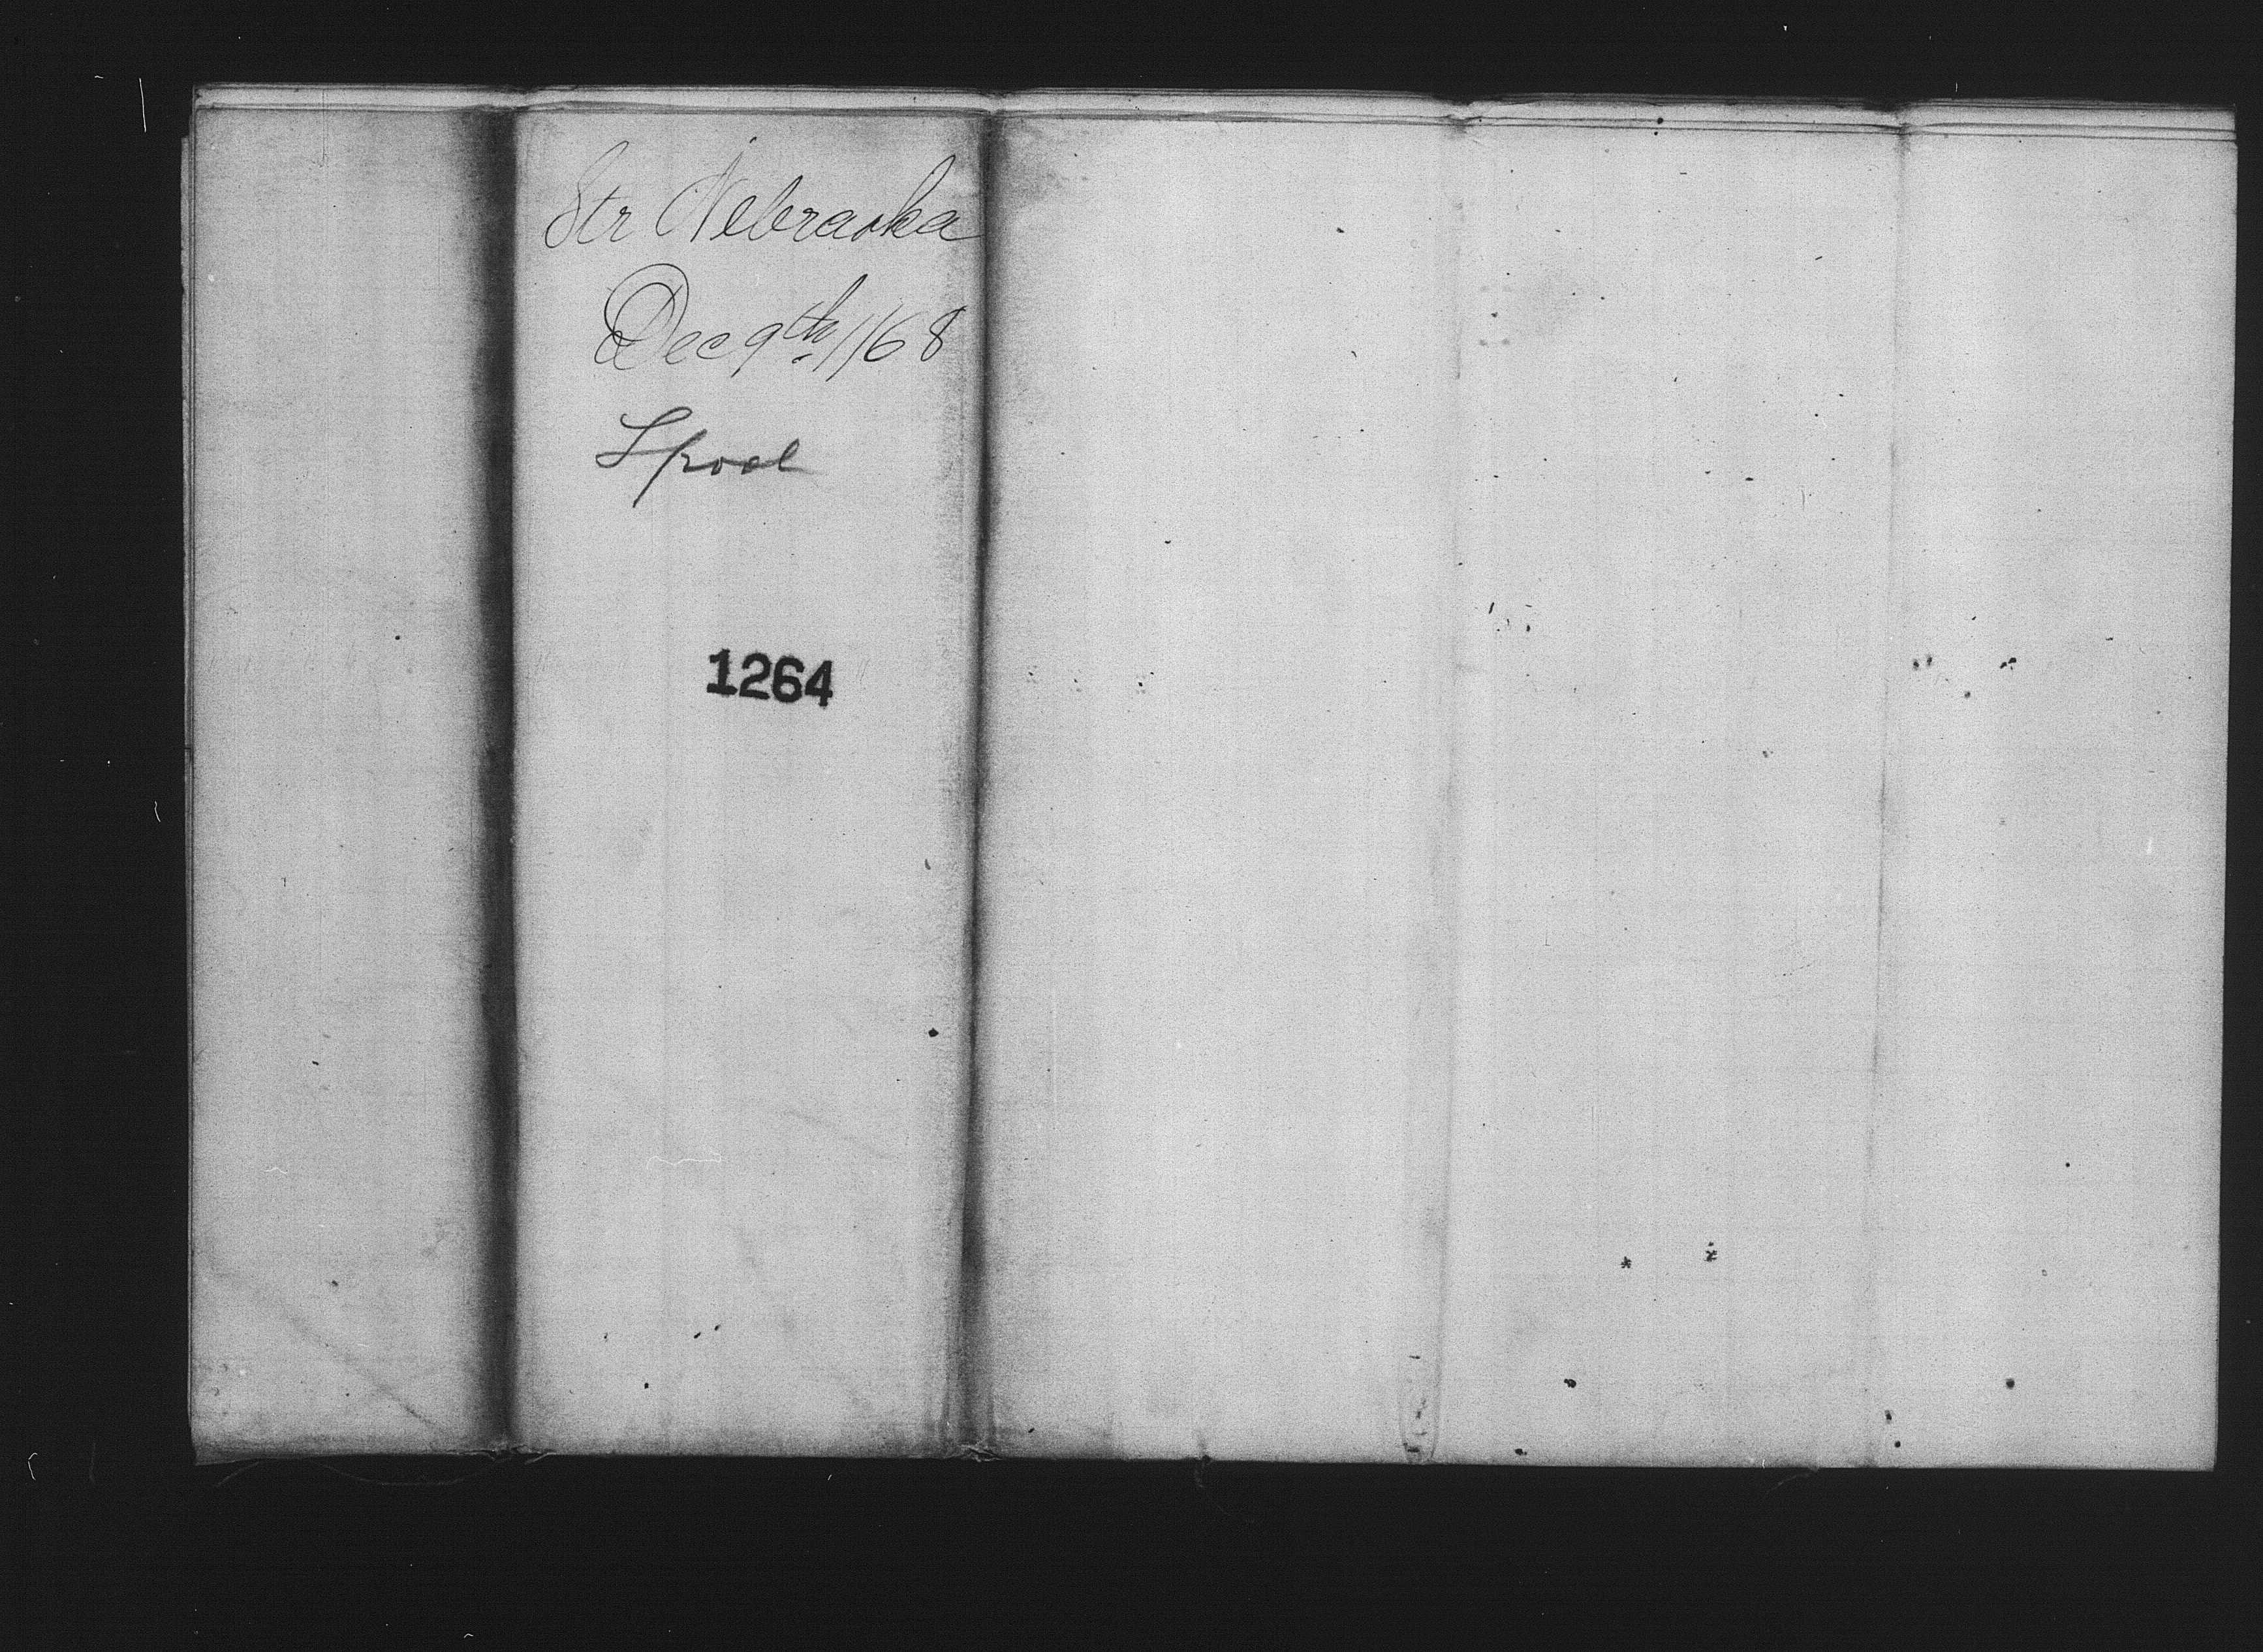 Str Nebraska
Dec 9th //68
Lpool
1264